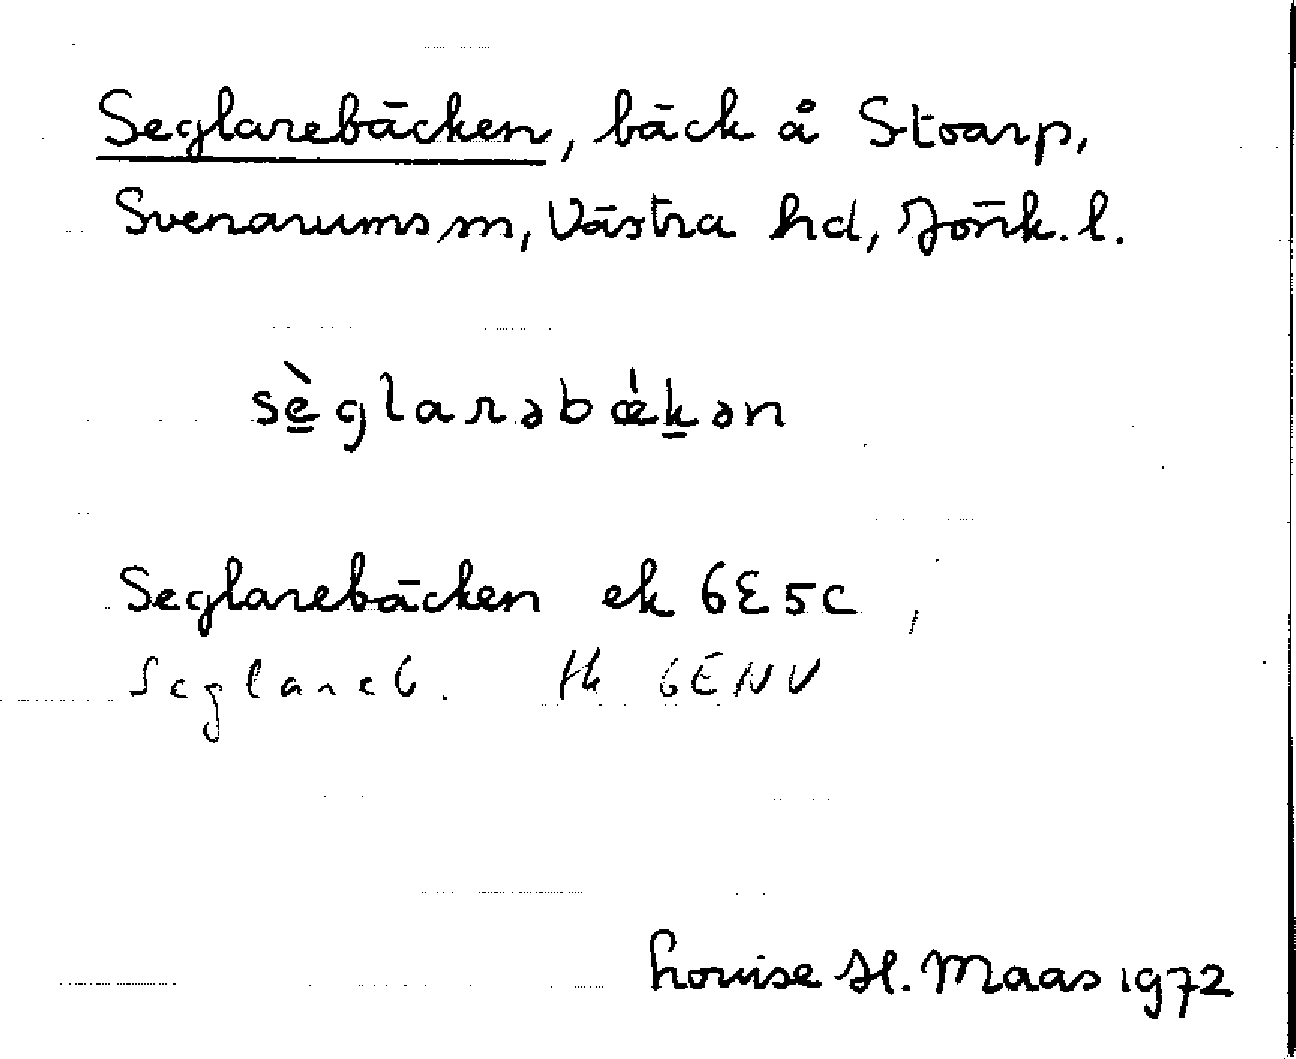 Seglarebäcken, bäck å Stoarp,
Svenarums sn, Västra hd, Jönk. l.
sè̲glarəbǽk̲ən
Seglarebäcken ek 6E5c,
Seglareb. tk 6ENV
Louise H. Maas 1972